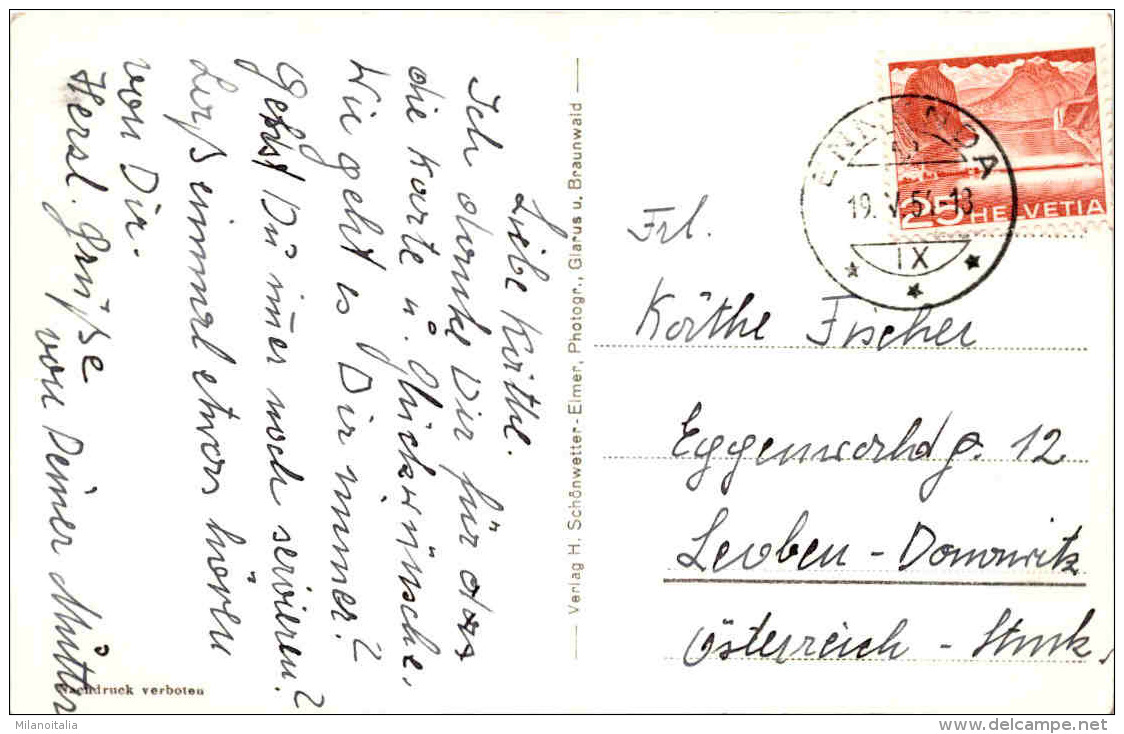 Liebe Käthe.
Ich danke Dir für das
die Karte u. Glückwünsche,
Wie geht es Dir immer?
Gehst Du imer noch servieren?
Laß einmal etwas hören
von Dir.
Herzl. Grüße
von Deiner Mutter
Verlag H. Schönwetter-Elmer, Photogr., Glarus u. Braunwald
Nachdruck verboten
ENNENDA
19. V. 51. 18
IX
25 HELVETIA
Frl.
Käthe Fischer
Eggenwaldg. 12
Leoben - Donawitz
Österreich - Stmk.
Milanoitalia
www.delcampe.net